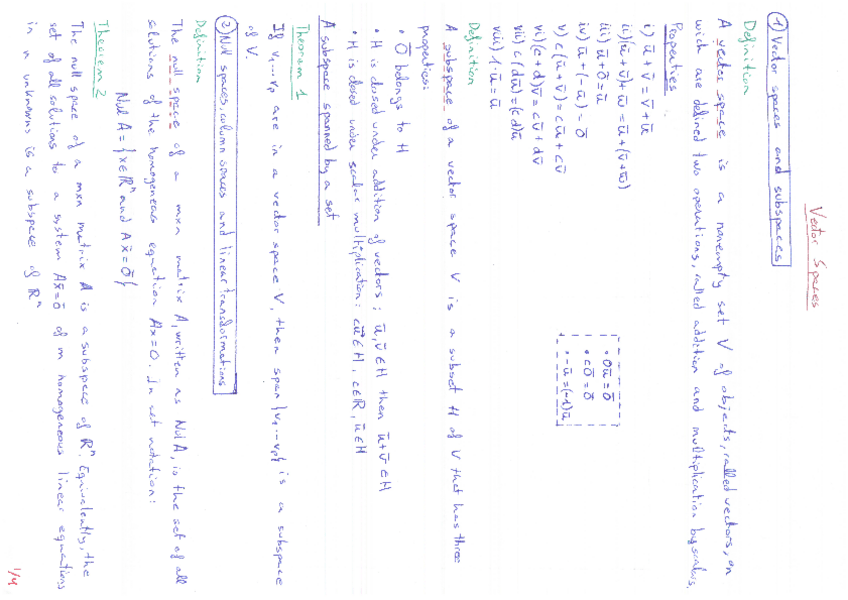 Vector Spaces
1) Vector spaces and subspaces
Definition
A vector space is a nonempty set V of objects, called vectors, on
wich are defined two operations, called addition and multiplication by scalars.
Properties
i) ū + v̄ = v̄ + ū
ii) (ū + v̄) + w̄ = ū + (v̄ + w̄)
iii) ū + ō = ū
iv) ū + (-ū) = ō
v) c(ū + v̄) = cū + cv̄
vi) (c + d)v̄ = cv̄ + dv̄
vii) c(dū) = (cd)ū
viii) 1·ū = ū
• 0ū = ō
• cō = ō
• -ū = (-1)ū
Definition
A subspace of a vector space V is a subset H of V that has three
properties:
• ō belongs to H
• H is closed under addition of vectors; ū, v̄ ∈ H then ū + v̄ ∈ H
• H is closed under scalar multiplication: cū ∈ H, c ∈ ℝ, ū ∈ H
A subspace spanned by a set
Theorem 1
If v₁...vₚ are in a vector space V, then span{v₁...vₚ} is a subspace
of V.
2) Null spaces, column spaces and linear transformations
Definition
The null space of a mxn matrix A, written as Nul A, is the set of all
solutions of the homogeneous equation Ax = 0. In set notation:
Nul A = {x ∈ ℝⁿ and Ax̄ = ō}
Theorem 2
The null space of a mxn matrix A is a subspace of ℝⁿ. Equivalently, the
set of all solutions to a system Ax̄ = ō of m homogeneous linear equations
in n unknowns is a subspace of ℝⁿ
1/4